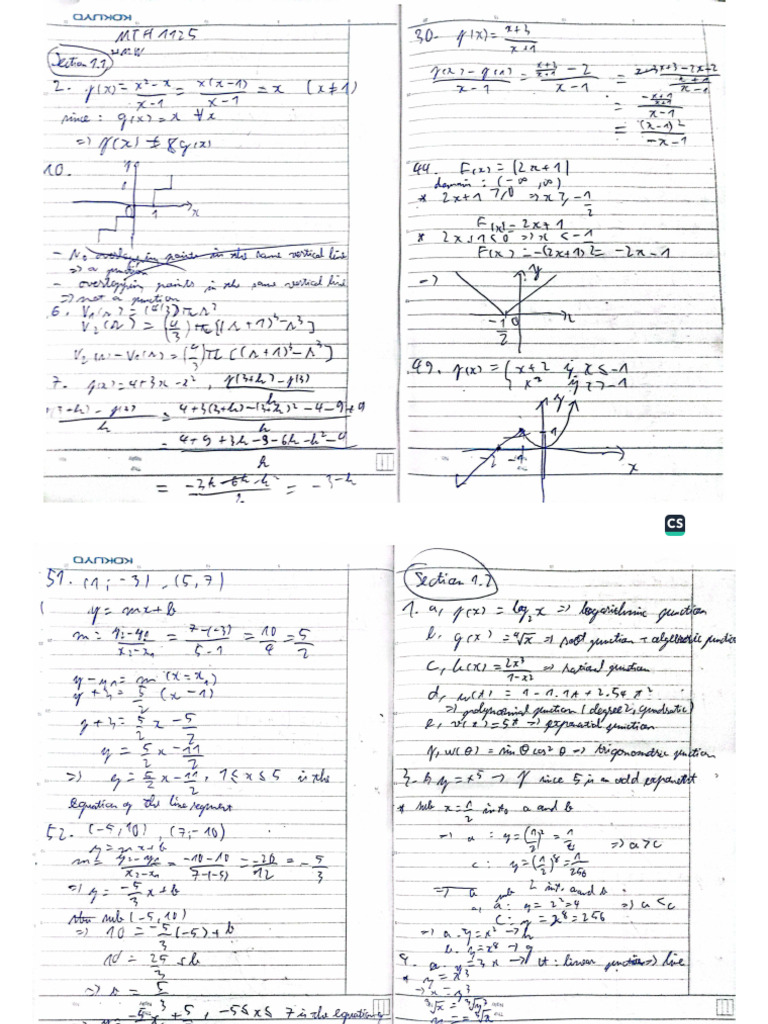 KOKUYO
MTH 1125
H.W
Section 1.1
2. f(x) = x² - x / x - 1 = x(x - 1) / x - 1 = x (x ≠ 1)
since : g(x) = x ∀x
=> f(x) ≠ g(x)
10.
0 1 x
- No overlappin points in the same vertical line
=> a function
- overlappin points in the same vertical line
=> not a function
6. V₁(r) = (4/3)πr³
V₂(r) = (4/3)π[(r+1)³ - r³]
V₂(r) - V₁(r) = (4/3)π[(r+1)³ - r³]
7. f(x) = 4 + 3x - x², f(3+h) - f(3) / h
f(3+h) - f(3) / h = 4 + 3(3+h) - (3+h)² - 4 - 9 + 9 / h
= 4 + 9 + 3h - 9 - 6h - h² - 4 / h
= -3h - h² / h = -3 - h
30. f(x) = x+3 / x+1
f(x) - f(1) / x - 1 = x+3 / x+1 - 2 / x - 1 = x+3 - 2x - 2 / x+1 / x - 1
= -x+1 / x+1 / x - 1
= (x-1)² / -x-1
44. F(x) = |2x + 1|
domain : (-∞, ∞)
* 2x+1 ≥ 0 => x ≥ -1/2
F(x) = 2x+1
* 2x+1 < 0 => x < -1
F(x) = -(2x+1) = -2x - 1
->
y
-1/2 0 x
49. f(x) = { x+2 if x ≤ -1
x² if x > -1
y
1
-2 -1 x
CS
KOKUYO
51. (1; -3), (5, 7)
y = mx + b
m = y₂ - y₁ / x₂ - x₁ = 7-(-3) / 5-1 = 10 / 4 = 5 / 2
y - y₁ = m (x - x₁)
y + 3 = 5/2 (x - 1)
y + 3 = 5/2 x - 5/2
y = 5/2 x - 11/2
=> y = 5/2 x - 11/2, 1 ≤ x ≤ 5 is the
equation of the line segment
52. (-5, 10), (7; -10)
y = mx + b
m = y₂ - y₁ / x₂ - x₁ = -10 - 10 / 7-(-5) = -20 / 12 = -5 / 3
=> y = -5/3 x + b
sub (-5, 10)
=> 10 = -5/3 (-5) + b
10 = 25/3 + b
=> b = 5/3
y = -5/3 x + 5/3, -5 ≤ x ≤ 7 is the equation of
Section 1.2
1. a, f(x) = log₂x => logarithmic function
b, g(x) = ⁴√x => root function - algebraic function
c, h(x) = 2x³ / 1-x² => rational function
d, u(t) = 1 - 1.1t + 2.54t²
=> polynomial function (degree 2, quadratic)
e, v(x) = 5ˣ => exponential function
f, w(θ) = sin θ cos² θ => trigonometric function
3. b, y = x5 -> f since 5 is an odd exponent
* sub x = 1/2 into a and b
=> a : y = (1/2)² = 1/4
=> a > c
c : y = (1/2)⁸ = 1/256
=> sub 2 into a and b :
a : y = 2² = 4
=> a < c
c : y = 2⁸ = 256
=> a. y = x² -> h
b. y = x⁸ -> g
4. a. y = 3x -> G : linear function => line
* y = x³